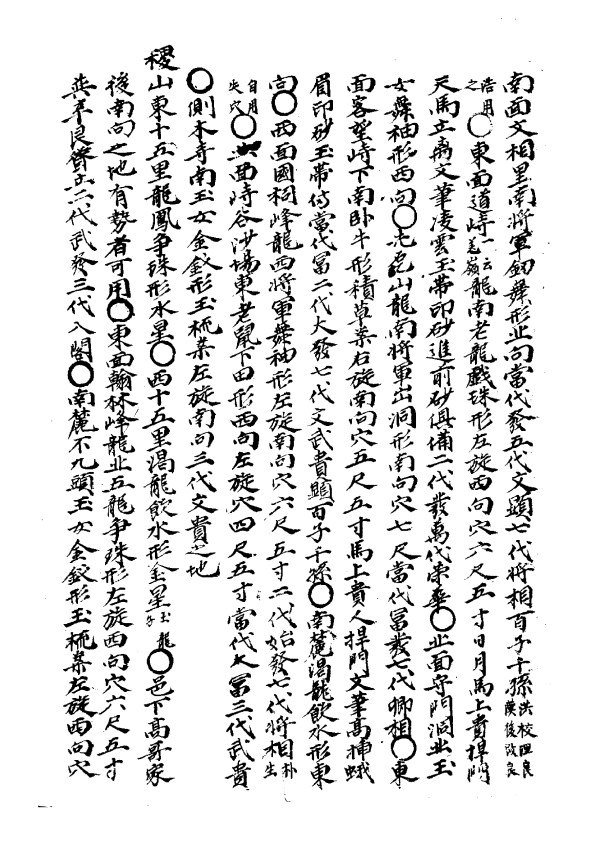 南面文相里南將軍劒舞形北向當代發五代文顯七代將相百子千孫
浩用之○東面道峙一云龍南老龍戱珠形左旋西向穴六尺五寸日月馬上貴捍門
天馬立禹文筆凌雲玉帶印砂進前砂俱備二代發萬代榮華○北面守門洞出玉
女舞袖形西向○虎山龍南將軍出洞形南向穴七尺當代冨發七代卿相○東
面客望峙下南卧牛形積草案右旋南向穴五尺五寸馬上貴人捍門文筆高揷蛾
眉印砂玉帶侍當代冨二代大發七代文武貴顯百子千孫○南麓渴龍飮水形東
向○西面國祠峰龍西將軍舞袖形左旋南向穴六尺五寸二代始發七代將相
○西面峙谷沙塲東老鼠下田形西向左旋穴四尺五寸當代大冨三代武貴
○側本寺南玉女金釵形玉梳案左旋南向三代文貴之地
稷山東十五里龍鳳爭珠形水星○西十五里渴龍飮水形金星○邑下高哥家
後南向之地有勢者可用○東面翰林峰龍北五龍爭珠形左旋西向穴六尺五寸
二代武發三代入閣○南麓不九頭玉女金釵形玉梳案左旋西向穴